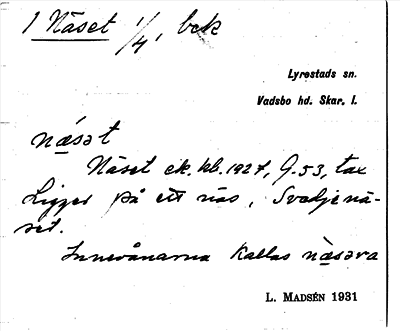 1 Näset 1/4, bck
Lyrestads sn.
Vadsbo hd. Skar. l.
nä̀sət
Näset ek. kb. 1927, G. 53, tax
Ligger på ett näs, Svedjenä-
set.
Innevånarna kallas nä̀səra
L. MADSÉN 1931